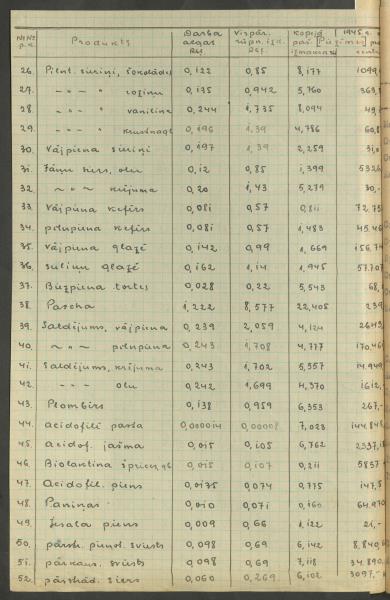 №№ p.k. Produkts Darba algas Rbļ. Vispār. rūpn. izd. Rbļ. Kopējā paš. izmaksas 1945. g.
26. Piena sieriņi, šokolādes 0,122 0,85 8,177 1099,
27. -"- " rozīņu 0,135 0,942 5,760 363,
28. -"- " vaniliņa 0,244 1,735 8,094
29. -"- " 0,196 1,39 4,786 60,
30. Vājpiena sieriņi 0,197 1,39 2,259 31,
31. Jāņu siers, olu 0,12 0,85 1,399 532
32. -"- krējuma 0,20 1,43 5,279 30,-
33. Vājpiena kefīrs 0,081 0,57 0,811 72.73
34. pilnpiena kefīrs 0,081 0,57 1,483 45.46
35. vājpiena glazē 0,142 0,99 1,669 156.7
36. suliņu glazē 0,162 1,14 1,945 57.707
37. Biezpiena tortes 0,028 0,22 5,543 68,
38. Pascha 1,222 8,577 22,405 239
39. Saldējums, vājpiena 0,239 2,059 4,124
40. -"- pilnpiena 0,243 1,708 4,777 170.46
41. Saldējums, krējuma 0,243 1,702 5,357 14.949
42. -"- olu 0,242 1,699 4,370 1612,
43. Plombīrs 0,138 0,959 6,353 267,
44. Acidofilā pasta 0,000014 0,00008 7,023 144,8
45. Acidof. 0,015 0,105 6,762 2337,
46. Biolaktina 0,015 0,107 0,211 5857
47. Acidofil. piens 0,0135 0,074 0,775 147,5
48. Paniņas 0,010 0,071 0,160 64.970
49. piens 0,009 0,66 1,122 21,-
50. pārstr. sviests 0,098 0,69 6,142 8,840,
51. pārkaus. sviests 0,098 0,69 7,118 34,890
52. pārstrād. siers 0,060 0,269 6,102 3097,-